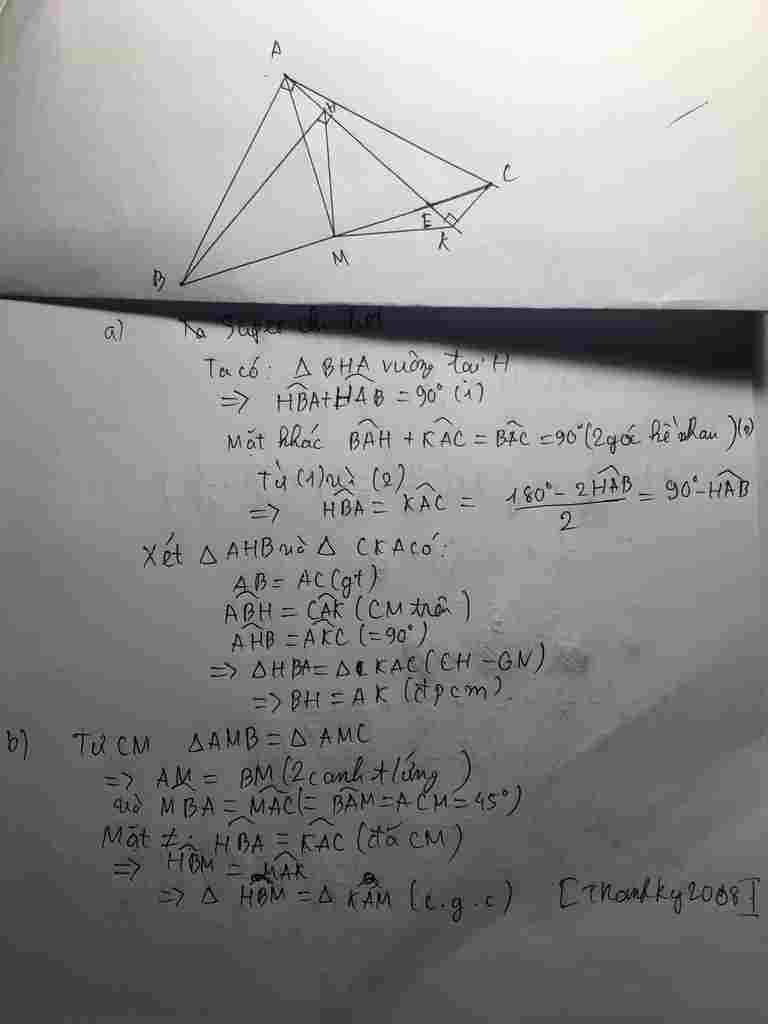 A
H
C
E
K
M
B
a)
Ta có: Δ BHA vuông tại H
=> HBA + HAB = 90° (1)
Mặt khác BAH + KAC = BAC = 90° (2 góc kề nhau) (2)
Từ (1) và (2)
=> HBA = KAC = 180° - 2HAB / 2 = 90° - HAB
Xét Δ AHB và Δ CKA có:
AB = AC (gt)
ABH = CAK (CM trên)
AHB = AKC (= 90°)
=> ΔHBA = Δ KAC (CH - GN)
=> BH = AK (đpcm).
b) Tự CM ΔAMB = Δ AMC
=> AM = BM (2 cạnh t/ứng)
và MBA = MAC (= BAM = ACM = 45°)
Mặt ≠: HBA = KAC (đã CM)
=> HBM = MAK
=> Δ HBM = Δ KAM (c.g.c) [Thanhky2008]